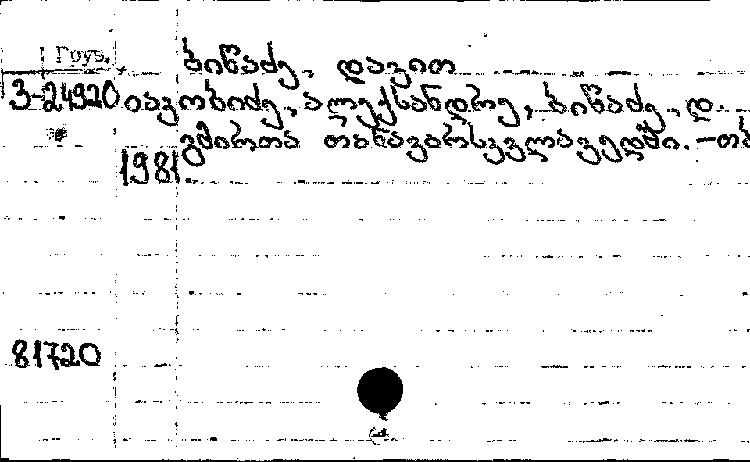 Груз.
ბიწაძე, დავით
3-24920 იაკობიძე, ალექსანდრე, ბიწაძე, დ.
გმირთა თანავარსკვლავედში. – თბ
1981
81720